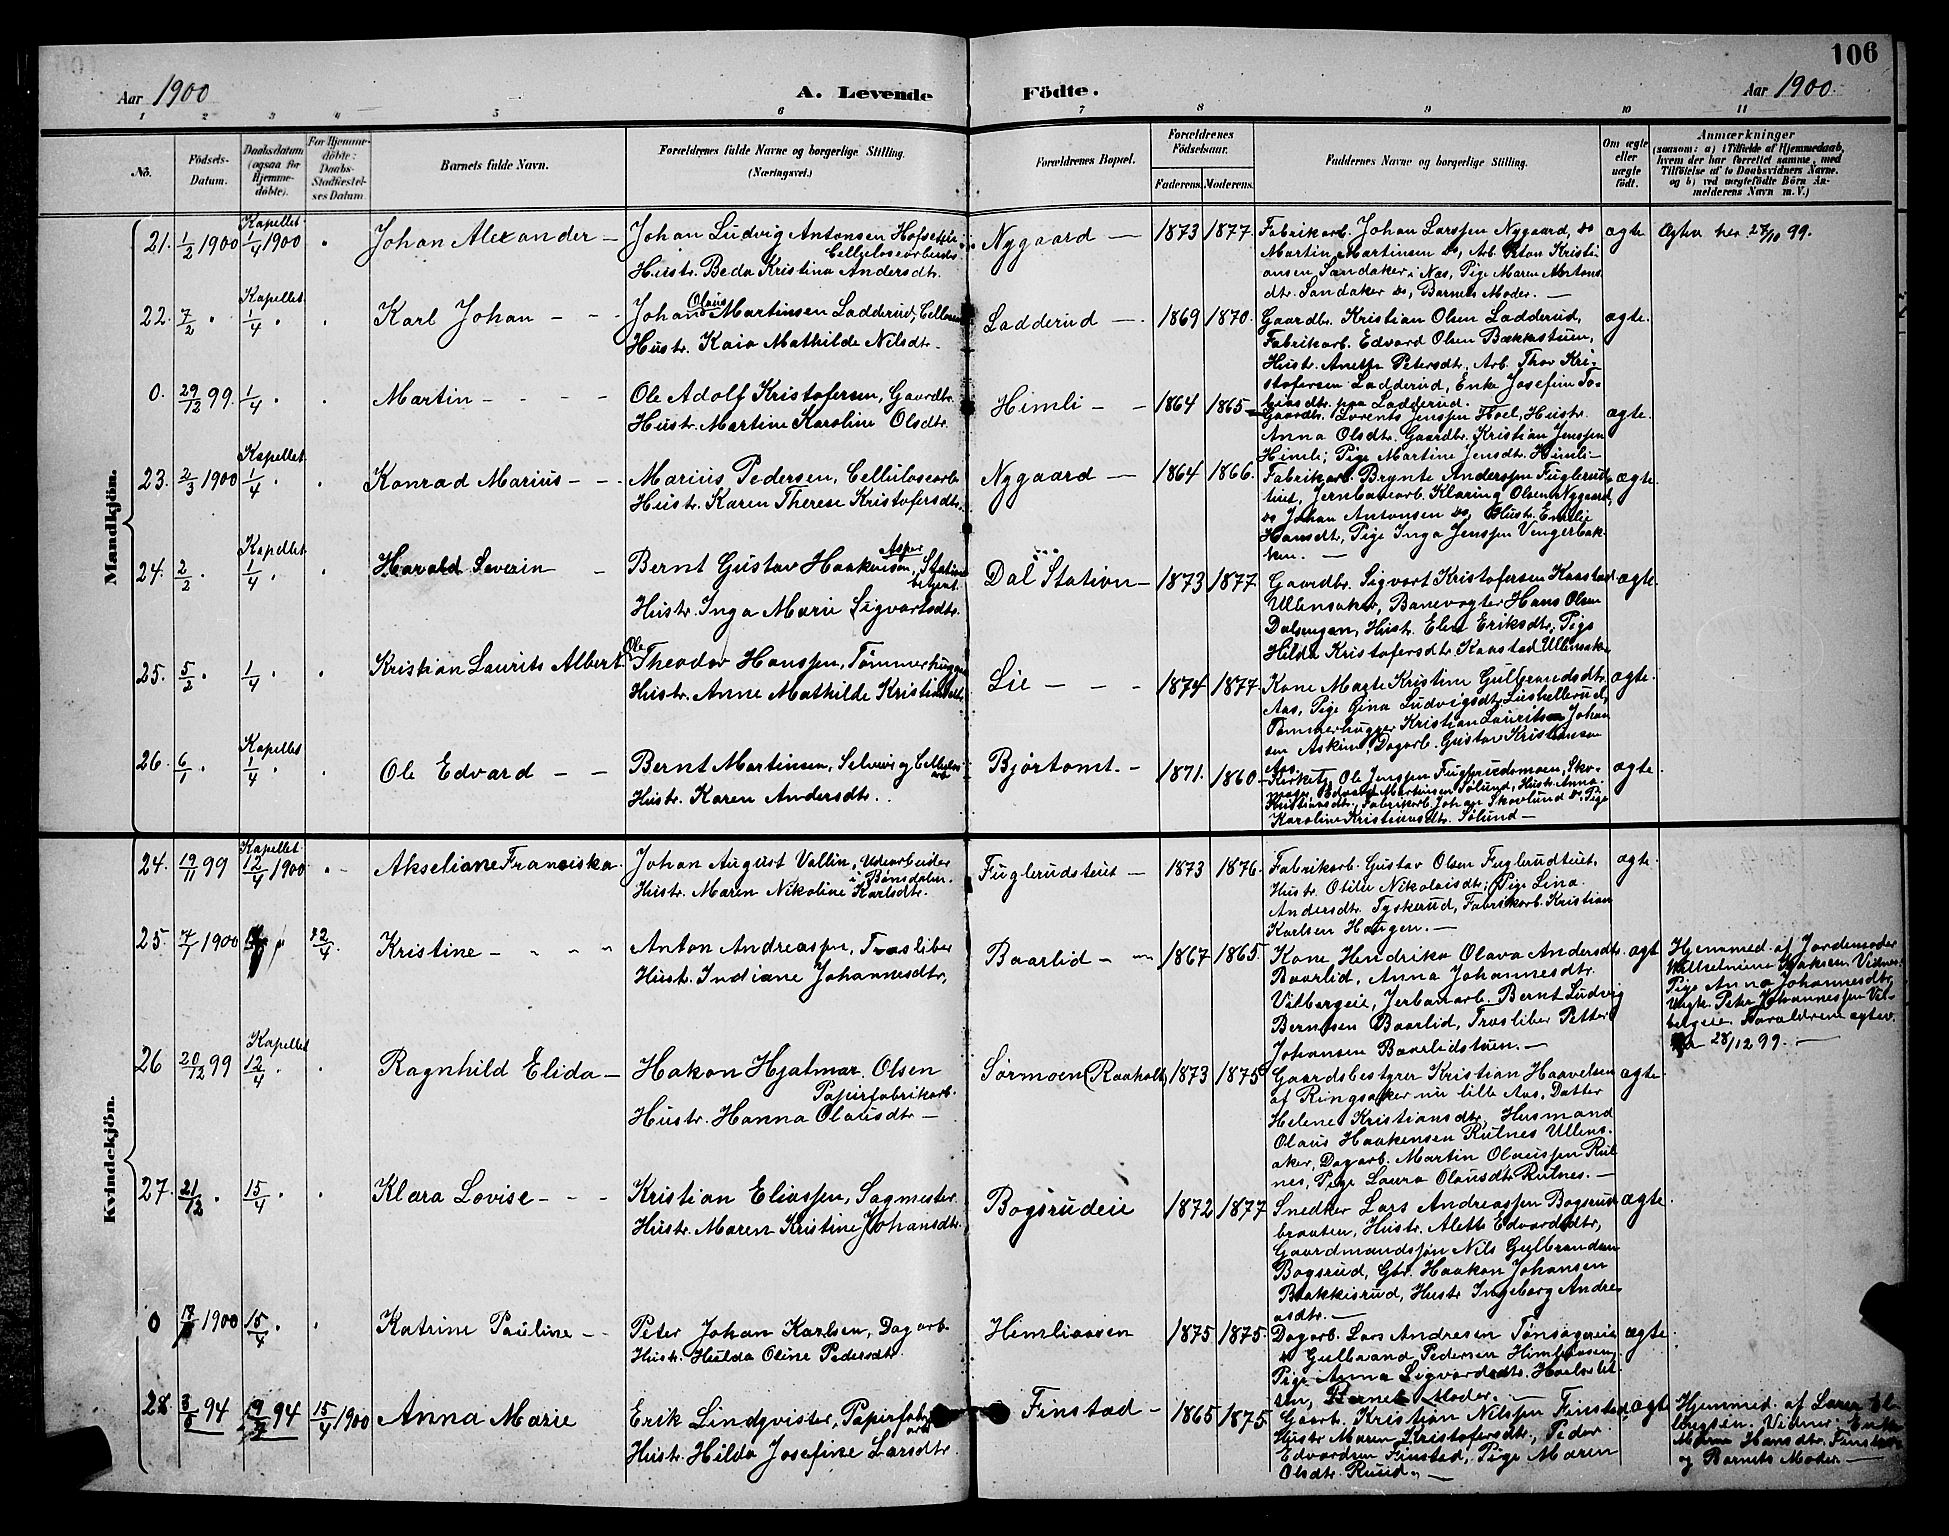 106
Aar 1900
A. Levende Födte.
Aar 1900
1 2 3 4 5 6 7 8 9 10 11
No.
Födsels-
Datum.
Daabsdatum
(ogsaa for
Hjemme-
döbte).
For Hjemme-
döbte:
Daabs-
Stadfæstel-
ses Datum
Barnets fulde Navn.
Forældrenes fulde Navne og borgerlige Stilling.
(Næringsvei.)
Forældrenes Bopæl.
Forældrenes
Födselsaar.
Faderens. Moderens.
Faddernes Navne og borgerlige Stilling.
Om ægte
eller
uægte
födt.
Anmærkninger
(saasom: a) i Tilfælde af Hjemmedaab,
hvem der har forrettet samme, med
Tilföielse af to Daabsvidners Navne.
og b) ved uægtefödte Börn An-
melderens Navn m. V.)
Mandkjön.
21. 1/2 1900 Kapellet 1/4 1900 Johan Alexander
Johan Ludvig Antonsen
Cellulosearbeider
Hustr. Beda Kristina Andersdtr.
Nygaard 1873 1877
Fabrikarb. Johan Larssen Nygaard, do
Martin Martinsen do, Arb. Anton Kristi-
ansen Sandaker i Næs, Pige Maren Antons
dtr. Sandaker do, Barnets Moder.
ægte Ægtev. her 27/10 99.
22. 7/2 Kapellet 1/4 Karl Johan
Johan Olaus Martinsen Ladderud, Cellulose
Hustr. Kaia Mathilde Nilsdtr.
Ladderud 1869 1870.
Gaardbr. Kristian Olsen Ladderud,
Fabrikarb. Edvard Olsen Bækkestuen,
Hustr. Anette Petersdtr. Arb. Thor Kri-
stofersen Ladderud, Enke Josefine To-
biasdtr. paa Ladderud.
ægte.
0. 29/12 99. 1/4 Martin
Ole Adolf Kristofersen, Gaardbr.
Hustr. Martine Karoline Olsdtr.
Himli 1864 1865
Gaardbr. Lorents Jenssen Hoel, Hustr.
Anna Olsdtr. Gaardbr. Kristian Jenssen
Himli; Pige Martine Jensdtr. Himli
ægte.
23. 2/3 1900 Kapellet 1/4 Konrad Marius
Marius Pedersen, Cellulosearb.
Hustr. Karen Therese Kristofersdtr.
Nygaard 1864 1866.
Fabrikarb. Brynte Anderssen Fuglerud
tuet, Jernbanearb. Klaring Olsen Nygaard,
do Johan Antonsen do, Hustr. Emelie
Hansdtr, Pige Inga Jenssen Vengerbak-
ken.
ægte.
24. 2/2 Kapellet 1/4 Harald Severin
Bernt Gustav Haakensen Asper, Stations
betjent.
Hustr. Inga Marie Sigvartsdtr.
Dal Station 1873 1877
Gaardbr. Sigvart Kristofersen Kaastad
Ullensaker, Banevogter Hans Olsen
Dalsengen, Hustr. Elen Eriksdtr, Pige
Hilda Kristofersdtr. Kaastad Ullensaker
ægte.
25. 5/2 1/4 Kristian Laurits Albert
Ole Theodor Hanssen, Tømmerhugger
Hustr. Anne Mathilde Kristiansdtr.
Lie 1874 1877
Kone Marte Kristine Gulbrandsdtr.
Aas, Pige Gina Ludvigsdtr.
Tømmerhugger Kristian Lauritsen Johan
sen Askim, Dagarb. Gustav Kristiansen
Aas.
ægte.
26. 6/1 Kapellet 1/4 Ole Edvard
Bernt Martinsen, Selveier og Cellulose
arb.
Hustr. Karen Andersdtr.
Bjørtomt. 1871. 1860.
Kirket. Ole Jenssen Sko-
mager Edvard Martinsen Sølund, Hustr. Anna
Kristiansdtr., Fabrikarb. Johan Skovlund do, Pige
Karoline Kristiansdtr. Sølund
ægte
Kvindekjön.
24. 19/11 99 Kapellet 12/4 1900 Akseliane Franciska
Johan August Vallin, Udearbeider
i Bønsdalen.
Hustr. Maren Nikoline Karlsdtr.
Fuglerudstuet 1873 1876.
Fabrikarb. Gustav Olsen Fuglerudtuet,
Hustr. Otilie Nikolaisdtr; Pige Lina
Andersdtr. Tyskerud, Fabrikarb. Kristian
Karlsen Haugen.
ægte.
25. 7/1 1900 22/4. Kristine
Anton Andreassen, Træsliber
Hustr. Indiane Johannesdtr,
Baarlid 1867 1865.
Kone Hendrika Olava Andersdtr.
Baarlid, Anna Johannesdtr.
Vilbergeie, Jerbanarb. Bernt Ludvig
Berntsen Baarlid, Træsliber Petter
Johansen Baarlidstuen.
ægte
Hjemmed. af Jordemoder
Wilhelmine Isaksen Vidner:
Pige Anna Johannesdtr,
Ungk. Peter Johannessen Vil-
bergeie. Foræeldrene ægtev.
28/12 99.
26 20/12 99 Kapellet 12/4 Ragnhild Elida
Hakon Hjalmar Olsen
Papirfabrikarb.
Hustr. Hanna Olausdtr
Sørmoen (Raaholt) 1873 1875
Gaardsbestyrer Kristian Haavelsen
af Ringsaker nu lille Aas, Datter
Helene Kristiansdtr, Husmand
Olaus Haakensen Rulnes Ullens-
aker, Dagarb. Martin Olaussen Rul
nes, Pige Laura Olausdtr. Rulnes.
ægte
27. 21/12 15/4 Klara Lovise
Kristian Eliassen, Sagmester.
Hustr. Maren Kristine Johansdtr.
Bogsrudeie 1872 1877
Snedker Lars Andreassen Bogsrud
braaten, Hustr. Alette Edvardsdtr,
Gaardmandssøn Nils Gulbrandsen
Bogsrud, Gbr. Haakon Johansen
Bakkisrud, Hustr Ingeborg Andre
asdtr.
ægte
0 1900 15/4 Katrine Pauline
Peter Johan Karlsen, Dagarb.
Hustr. Hulda Oline Pedersdtr.
Himliaasen 1875 1875.
Dagarb. Lars Andresen Tønsagereie
do Gulbrand Pedersen Himliaasen,
Pige Anna Sigvardsdtr.
Barnets Moder.
ægte
28. 3/5 94 94 15/4 1900 Anna Marie
Erik Lindqvister, Papirfabr.
arb.
Hustr. Hilda Josefine Larsdtr.
Finstad 1865 1875
Gaarbr. Kristian Nilssen Finstad,
Hustr Maren Kristofersdtr, Peder
Edvardsen Finstad, Pige Maren
Olsdtr. Ruud
ægte
Hjemmed. af Lærer El-
lingsen. Vidner: Enke
Maren Hansdtr. Finstad
og Barnets Moder